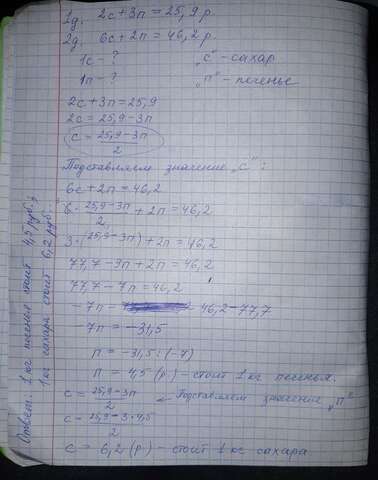 1д. 2с+3п=25,9 р.
2д. 6с+2п=46,2 р.
1с - ? "с" - сахар
1п - ? "п" - печенье
2с+3п=25,9
2с = 25,9-3п
с = 25,9-3п / 2
Подставляем значение "с":
6с+2п=46,2
6 · 25,9-3п / 2 + 2п = 46,2
3·(25,9-3п)+2п=46,2
77,7-9п+2п=46,2
77,7-7п=46,2
-7п = 46,2-77,7
-7п = -31,5
п = -31,5:(-7)
п = 4,5 (р) - стоит 1 кг печенья.
с = 25,9-3п / 2 ← Подставляем значение "п"
с = 25,9-3·4,5 / 2
с = 6,2 (р) - стоит 1 кг сахара
Ответ: 1 кг печенья стоит 4,5 руб.;
1 кг сахара стоит 6,2 руб.